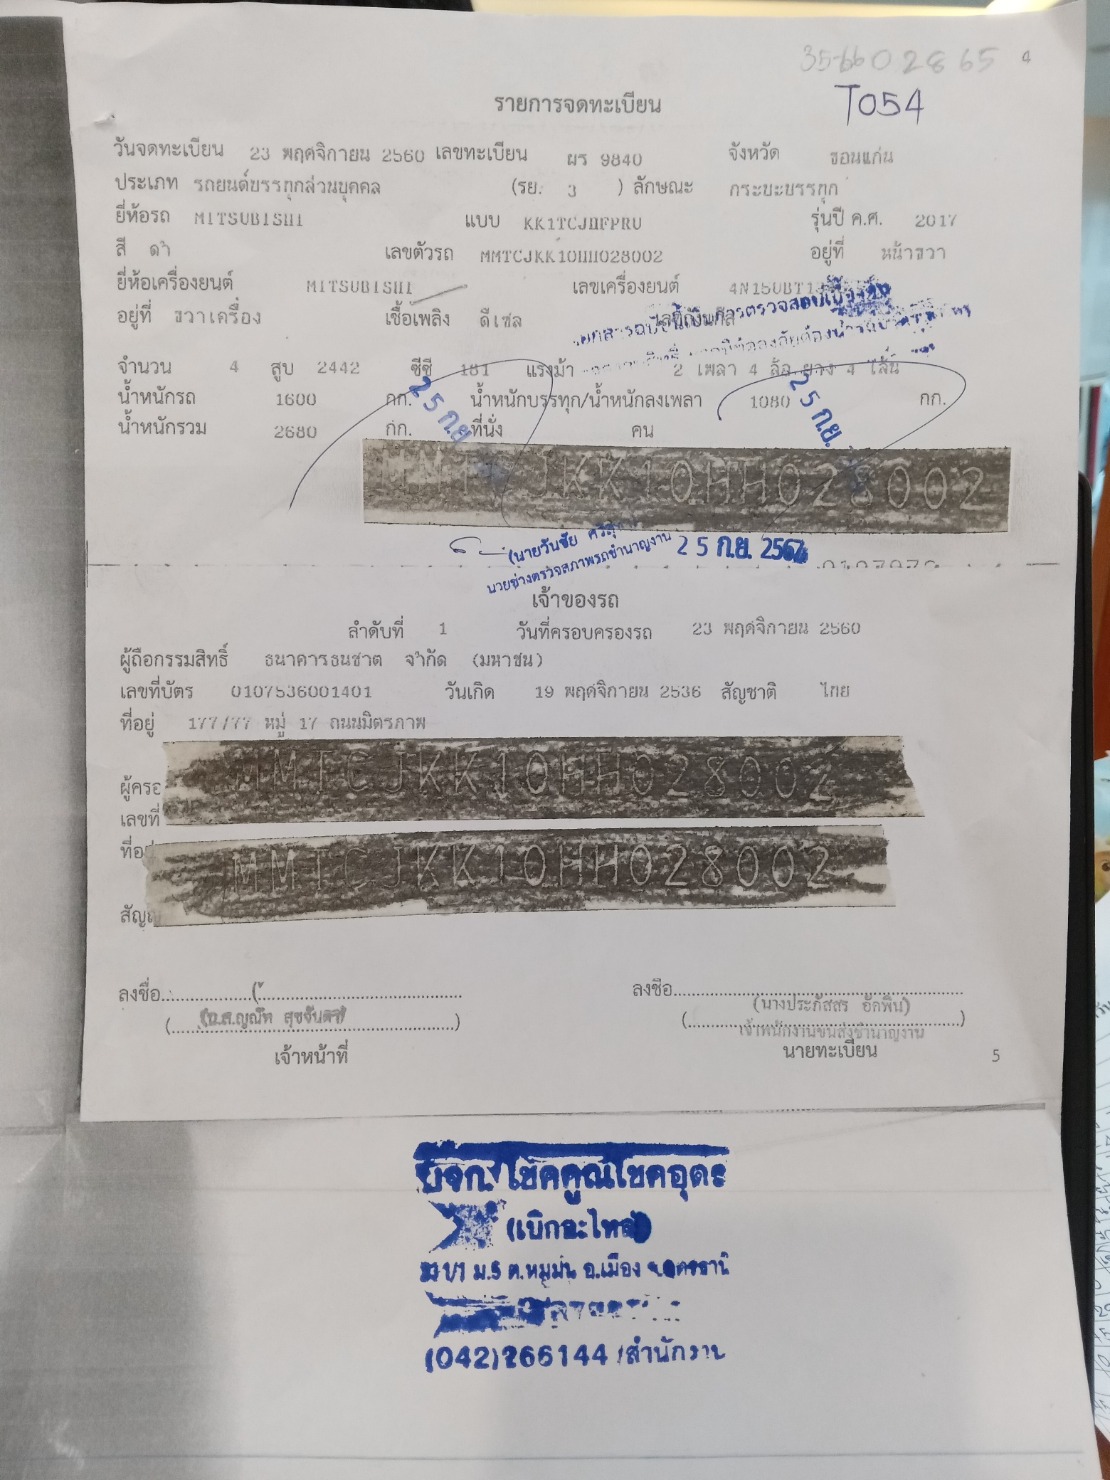 35-6602865 4
T054
รายการจดทะเบียน
วันจดทะเบียน 23 พฤศจิกายน 2560 เลขทะเบียน ผร 9840 จังหวัด ขอนแก่น
ประเภท รถยนต์บรรทุกส่วนบุคคล (รย. 3 ) ลักษณะ กระบะบรรทุก
ยี่ห้อรถ MITSUBISHI แบบ KK1TCJHFPRU รุ่นปี ค.ศ. 2017
สี ดำ เลขตัวรถ MMTCJKK10HH028002 อยู่ที่ หน้าขวา
ยี่ห้อเครื่องยนต์ MITSUBISHI เลขเครื่องยนต์
อยู่ที่ ขวาเครื่อง เชื้อเพลิง ดีเซล
จำนวน 4 สูบ 2442 ซีซี 181 แรงม้า 2 เพลา 4 ล้อ ยาง 4 เส้น
น้ำหนักรถ 1600 กก. น้ำหนักบรรทุก/น้ำหนักลงเพลา 1080 กก.
น้ำหนักรวม 2680 กก. ที่นั่ง คน
25 ก.ย.
25 ก.ย.
MMTCJKK10HH028002
(นายวันชัย
นายช่างตรวจสภาพรถชำนาญงาน 25 ก.ย. 256
เจ้าของรถ
ลำดับที่ 1 วันที่ครอบครองรถ 23 พฤศจิกายน 2560
ผู้ถือกรรมสิทธิ์ ธนาคารธนชาต จำกัด (มหาชน)
เลขที่บัตร 0107536001401 วันเกิด 19 พฤศจิกายน 2536 สัญชาติ ไทย
ที่อยู่ 177/77 หมู่ 17 ถนนมิตรภาพ
MMTCJKK10HH028002
ผู้ครอ
เลขที่
ที่อยู่ MMTCJKK10HH028002
สัญ
ลงชื่อ ลงชื่อ
(นางประภัสสร อัคพิน)
เจ้าพนักงานขนส่งชำนาญงาน
เจ้าหน้าที่ นายทะเบียน 5
บจก. โชคคูณโชคอุดร
(เบิกอะไหล่)
ม.5 ต.หมูม่น อ.เมือง จ.อุดรธานี
(042)266144 /สำนักงาน